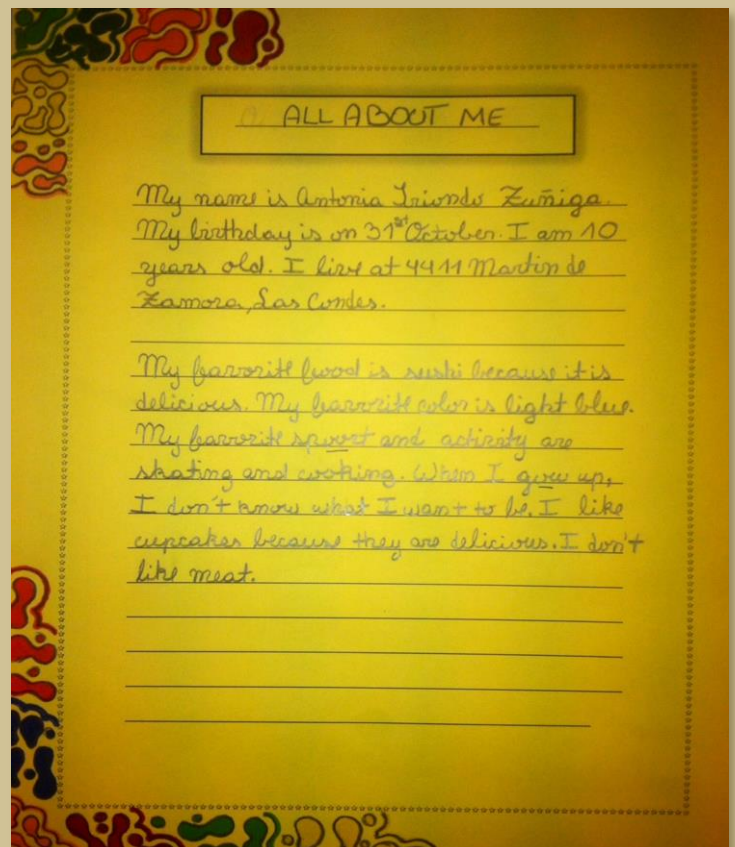 ALL ABOUT ME
My name is Antonia Iriondo Zuñiga.
My birthday is on 31st October. I am 10
years old. I live at 4411 Martin de
Zamora, Las Condes.
My favorite food is sushi because it is
delicious. My favorite color is light blue.
My favorite spoort and activity are
skating and cooking. When I gow up,
I don't know what I want to be. I like
cupcakes because they are delicious. I don't
like meat.